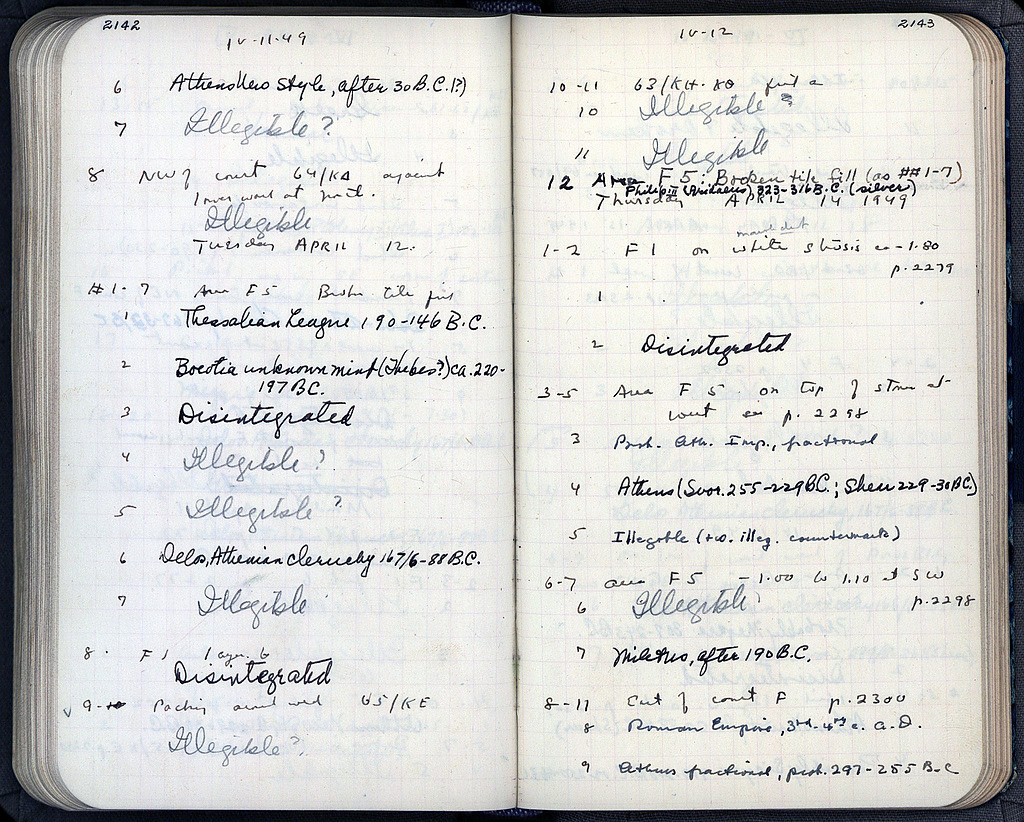 2142
IV-11-49
6 Athens New Style, after 30 B.C.(?)
7 Illegible?
8 NW of court 64/KA
Illegible
Tuesday APRIL 12.
#1-7 Area F5 Broken tile
1 Thessalian League 190-146 B.C.
2 Boeotia unknown mint (Thebes?) ca. 220-
197 B.C.
3 Disintegrated
4 Illegible?
5 Illegible?
6 Delos, Athenian cleruchy 167/6-88 B.C.
7 Illegible
8. F1 layer 6
Disintegrated
✓ 9 Packing around well 65/KE
Illegible?
2143
IV-12
10-11 63/KH-KΘ
10 Illegible?
11 Illegible
12 Area F5: Broken tile fill (as ## 1-7)
Philip III (Aridaeus) 323-316 B.C. (silver)
Thursday APRIL 14 1949
1-2 F1 on white stosis ca -1.80
p. 2279
1
2 Disintegrated
3-5 Area F5 on top of stone at
west p. 2298
3 Prob. Ath. Imp., fractional
4 Athens (Svor. 255-229 B.C.; Shear 229-30 B.C.)
5 Illegible (two illeg. countermarks)
6-7 area F5 -1.00 to 1.10 at SW
6 Illegible p. 2298
7 Miletus, after 190 B.C.
8-11 East of court F p. 2300
8 Roman Empire, 3rd-4th c. A.D.
9 Athens fractional, prob. 297-255 B.C